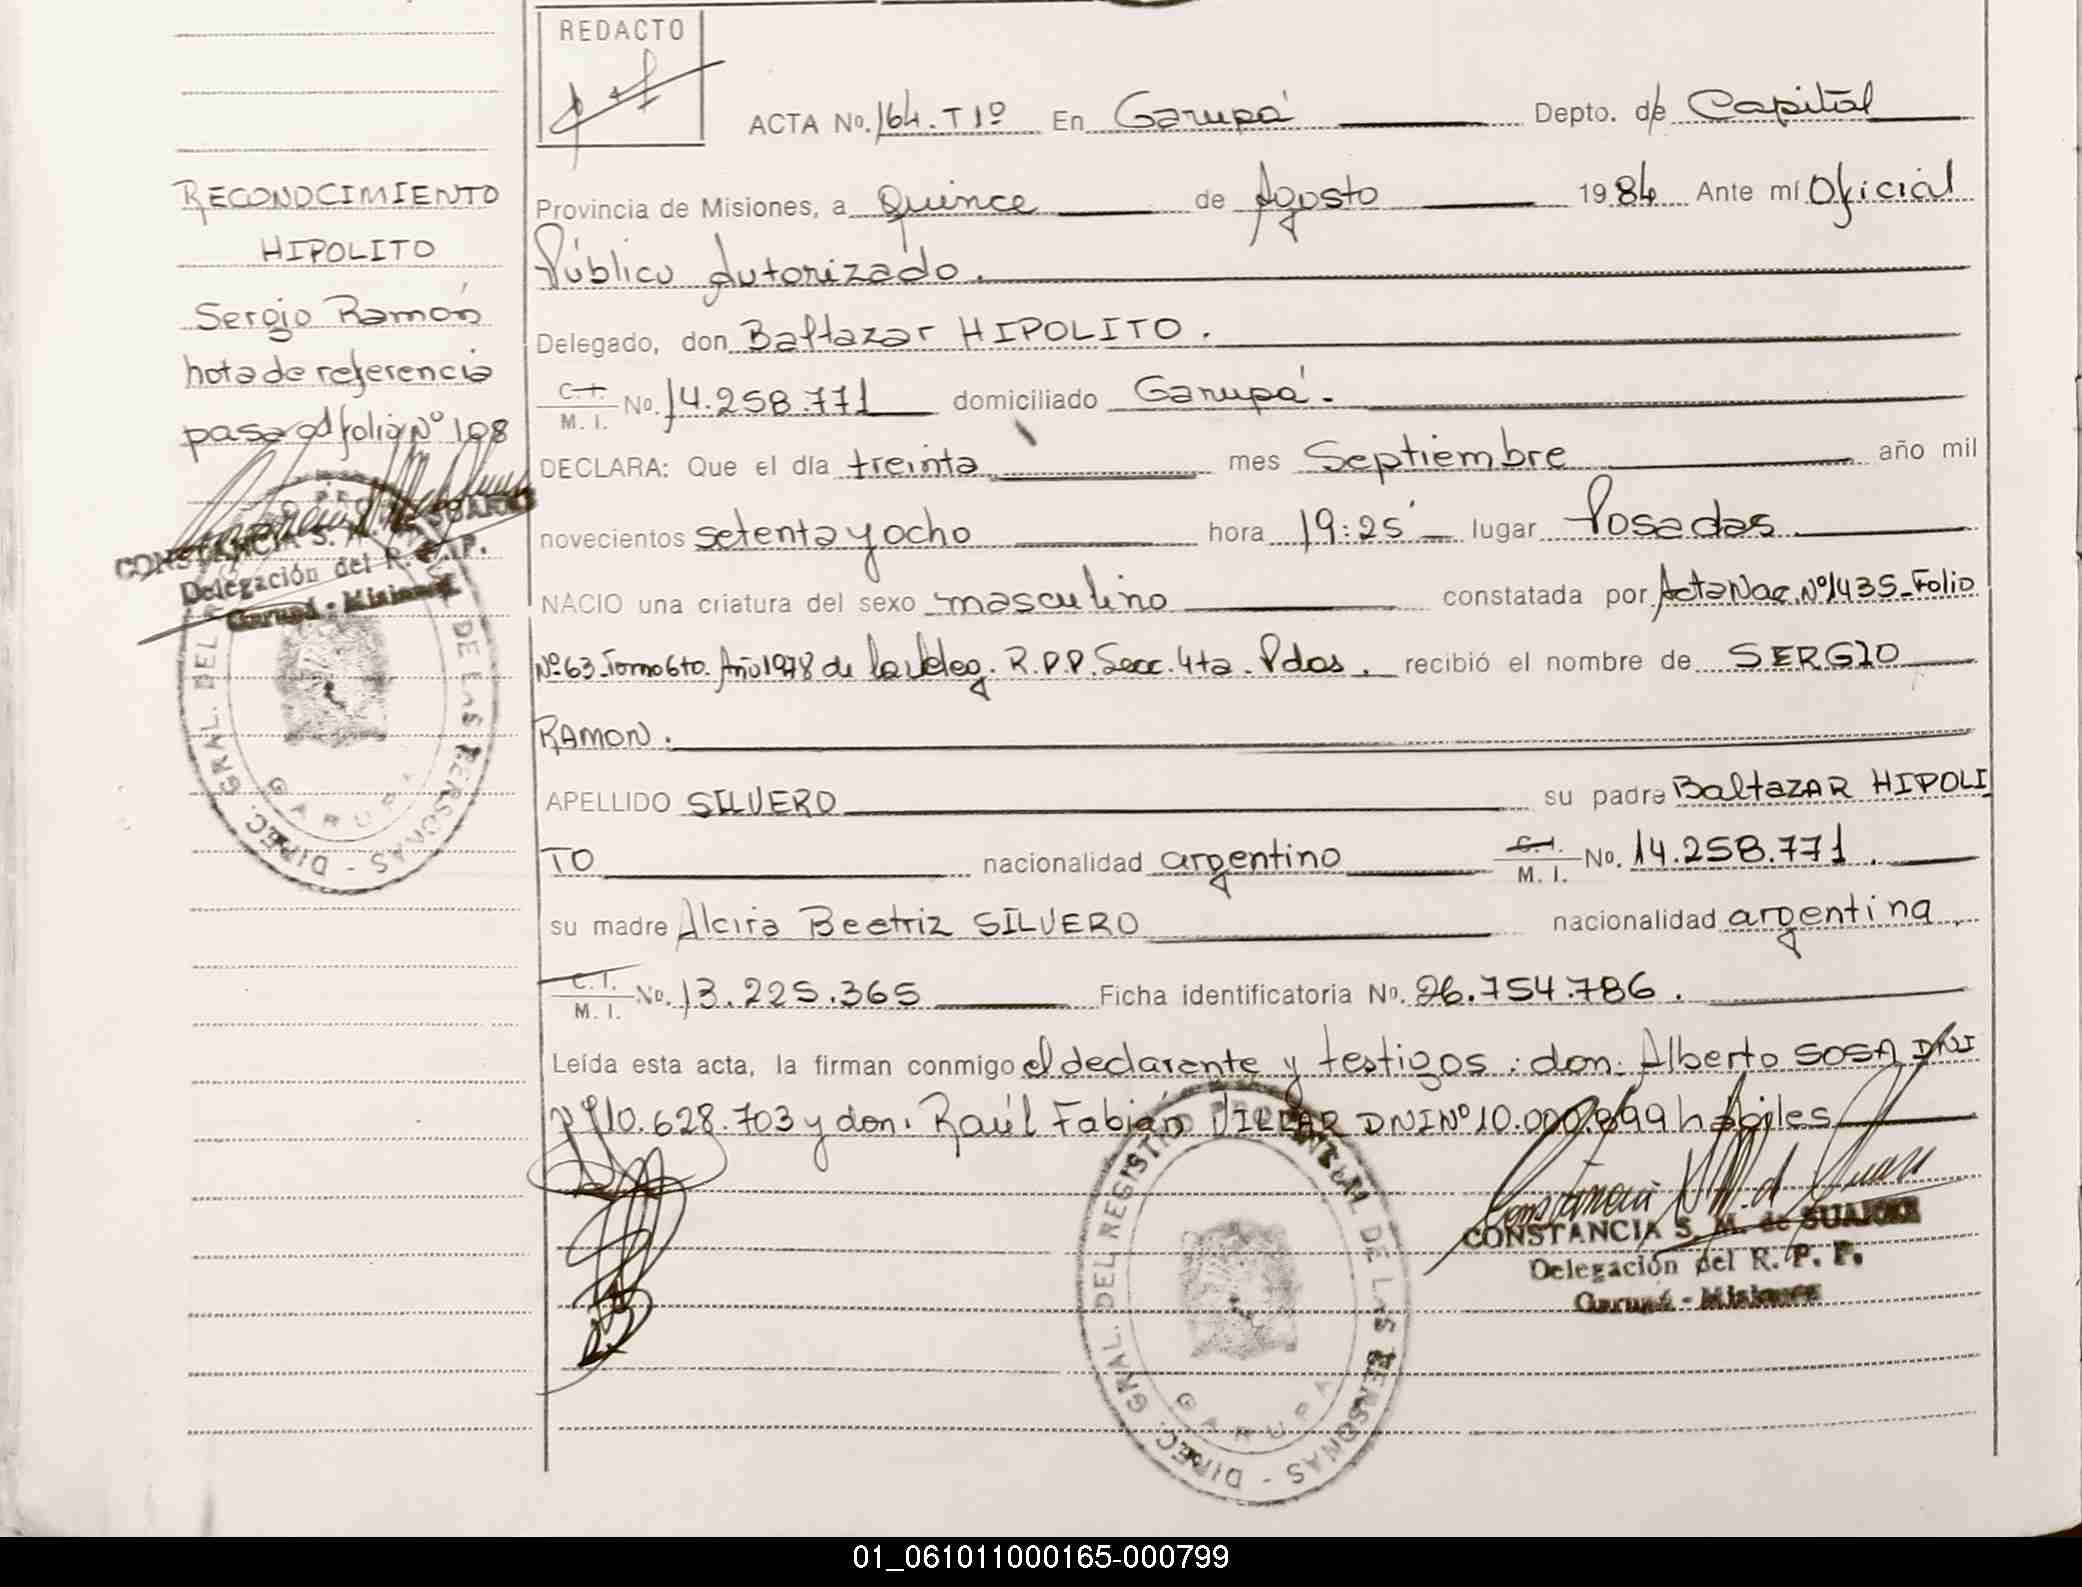 REDACTO
ACTA No. 164. T 1º En Garupá Depto. de Capital
Provincia de Misiones, a Quince de Agosto 1984 Ante mí Oficial
Público Autorizado.
Delegado, don Baltazar HIPOLITO.
C.I.
M. I. No. 14.258.771 domiciliado Garupá.
DECLARA: Que el día treinta mes Septiembre año mil
novecientos setenta y ocho hora 19:25' lugar Posadas
NACIO una criatura del sexo masculino constatada por Acta Nac. Nº 1435_Folio
Nº 63_Tomo 6to. Año 1978 de la Deleg. R.P.P. Secc. 4ta. Pdas. recibió el nombre de SERGIO
RAMON.
APELLIDO SILVERO su padre Baltazar HIPOLI
TO nacionalidad argentino C.I.
M. I. No. 14.258.771.
su madre Alcira Beatriz SILVERO nacionalidad argentina
C.I.
M. I. No. 13.225.365 Ficha identificatoria No. 26.754.786.
Leída esta acta, la firman conmigo el declarante y testigos: don: Alberto SOSA DNI
Nº 10.628.703 y don: Raúl Fabián VILLAR DNI Nº 10.000.899 hábiles
CONSTANCIA S. M. de SUAREZ
Delegación del R. P. P.
Garupá - Misiones
DIREC. GRAL. DEL REGISTRO PROVINCIAL DE LAS PERSONAS -
GARUPA
RECONOCIMIENTO
HIPOLITO
Sergio Ramón
nota de referencia
pasa al folio Nº 108
CONSTANCIA S. M. de SUAREZ
Delegación del R. P. P.
Garupá - Misiones
DIREC. GRAL. DEL DE LAS PERSONAS -
GARUPA
01_061011000165-000799